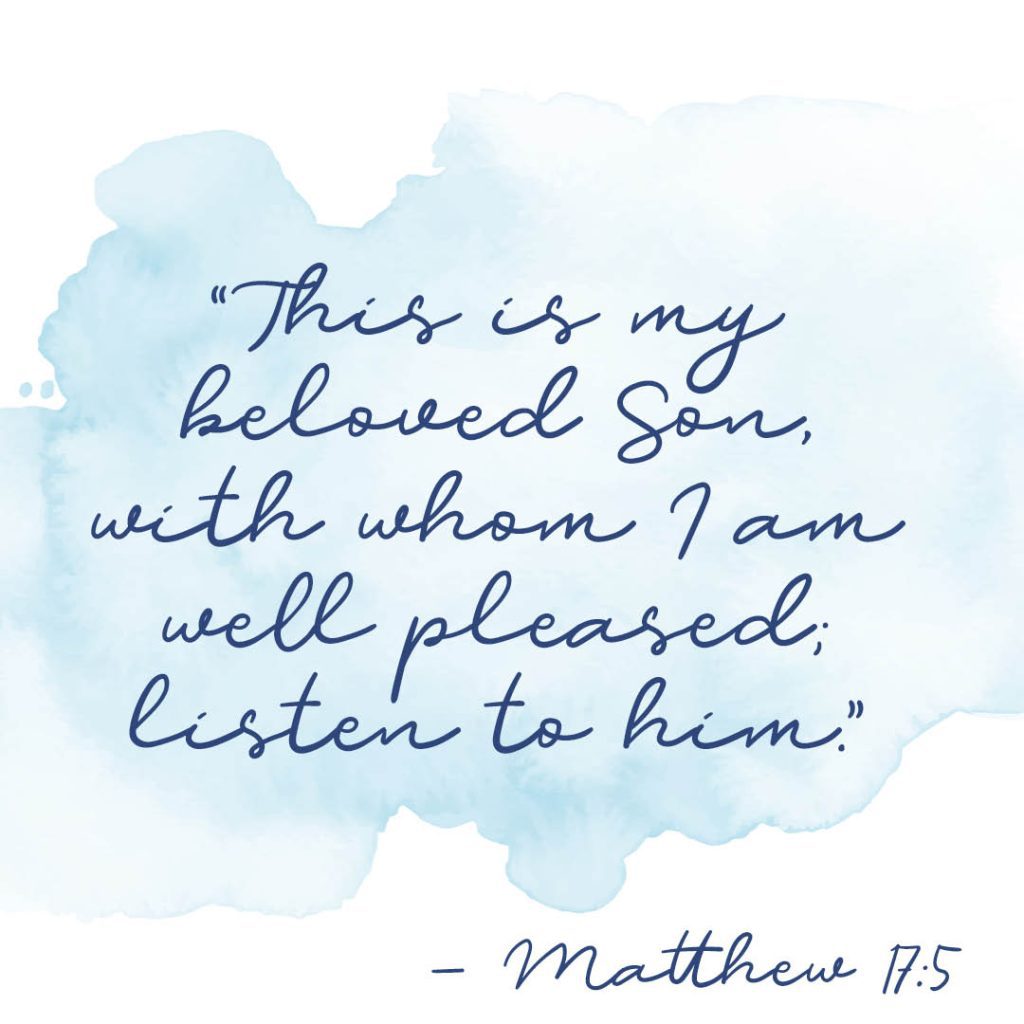 “This is my
beloved Son,
with whom I am
well pleased;
listen to him.”
– Matthew 17:5